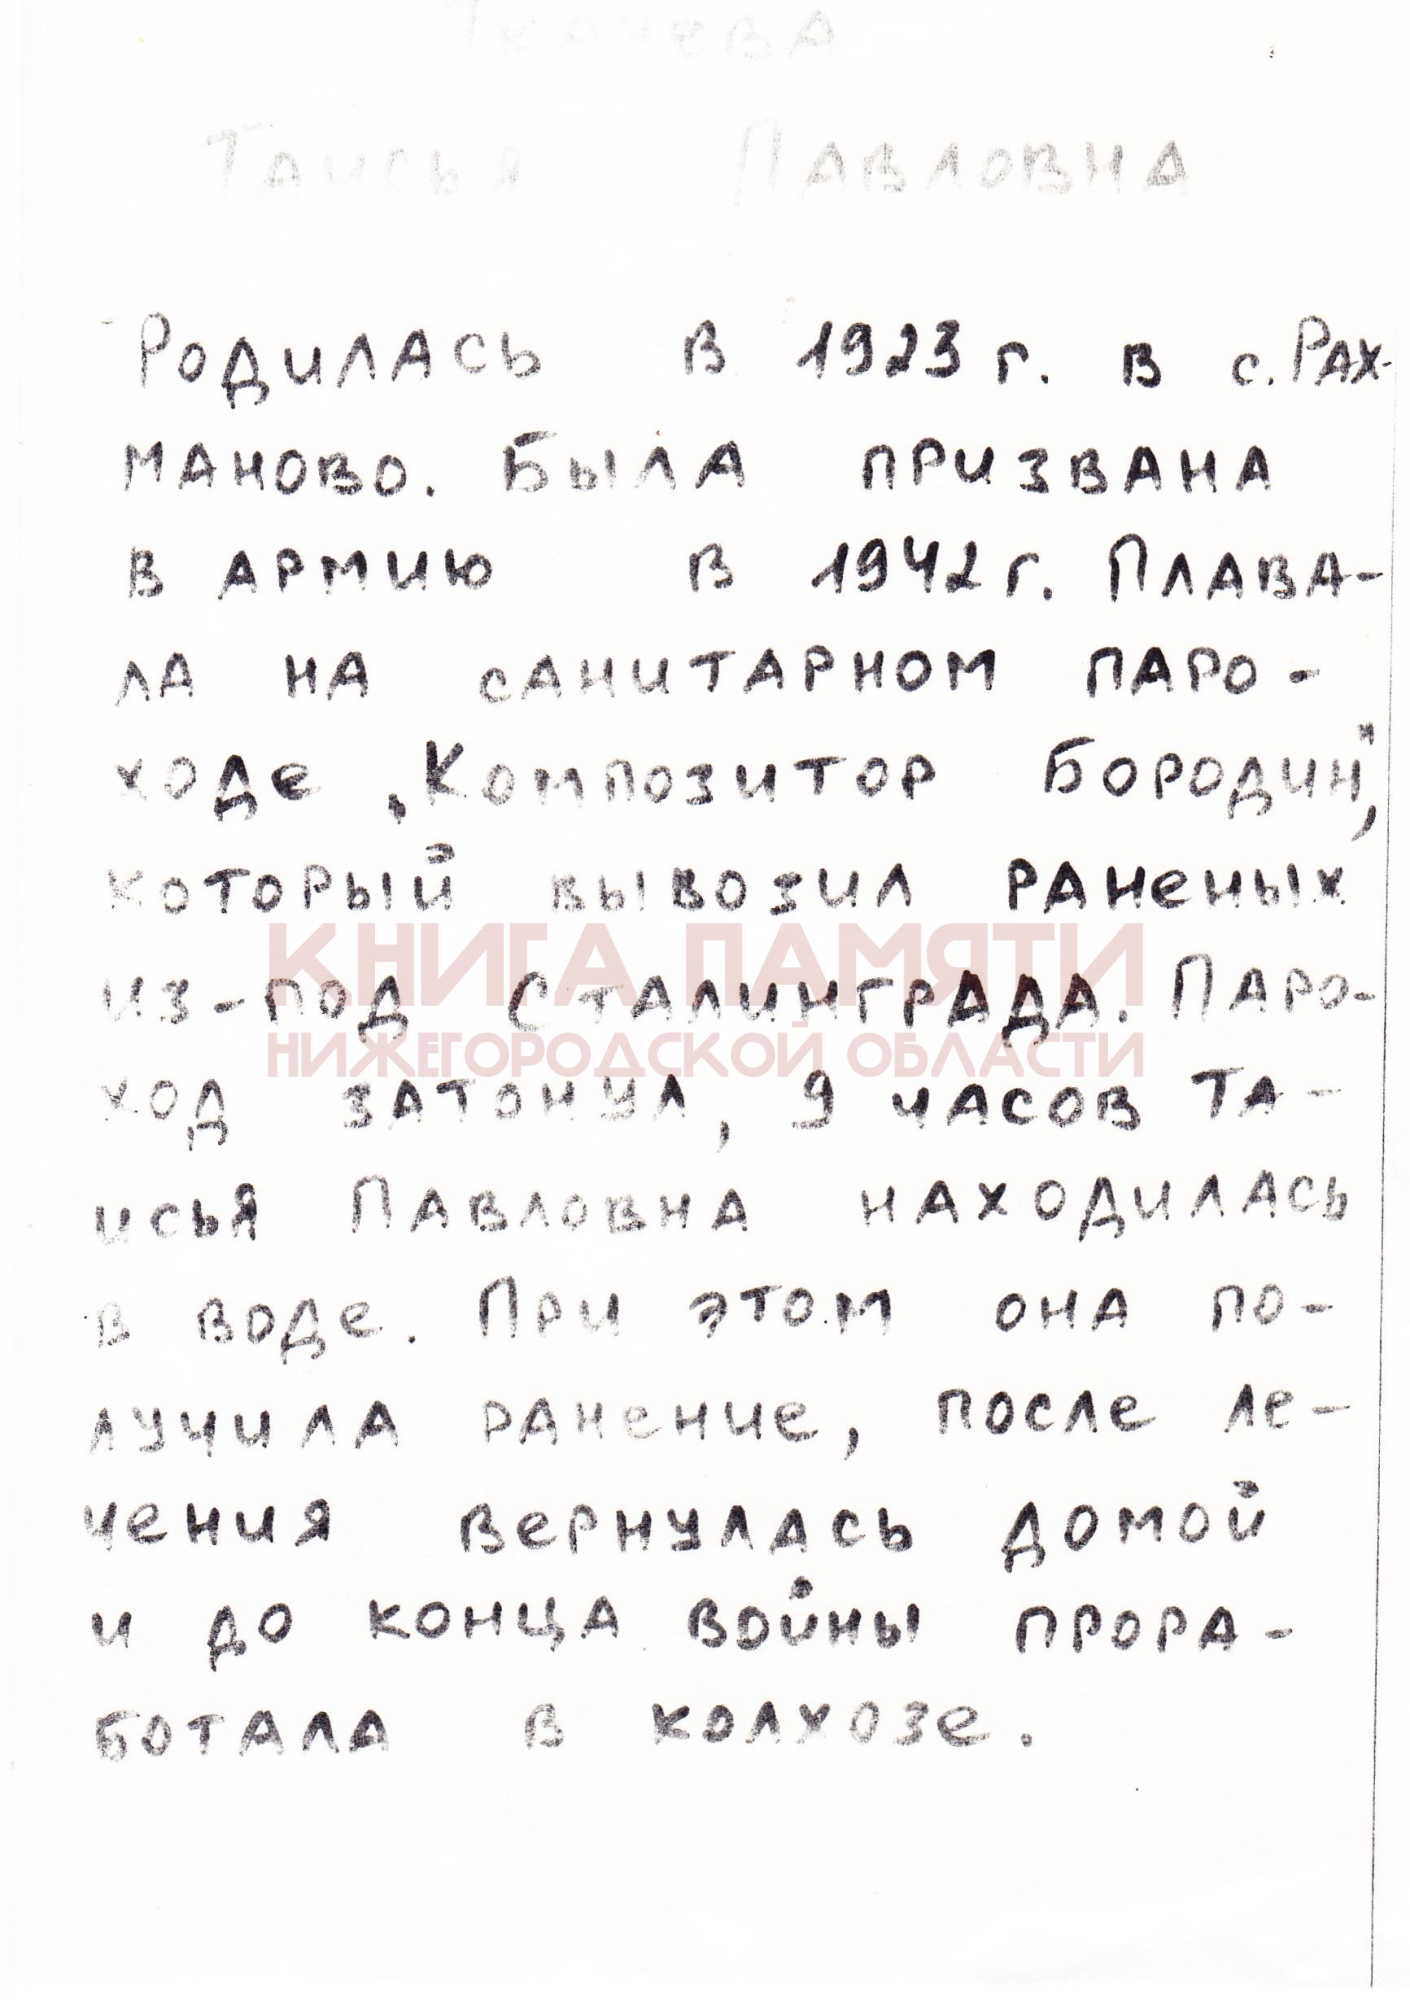 Ткачева
Таисья Павловна
Родилась в 1923 г. в с. Рах-
маново. Была призвана
в армию в 1942 г. Плава-
ла на санитарном паро-
ходе „Композитор Бородин",
который вывозил раненых
КНИГА ПАМЯТИ
из-под Сталинграда. Паро-
НИЖЕГОРОДСКОЙ ОБЛАСТИ
ход затонул, 9 часов Та-
исья Павловна находилась
в воде. При этом она по-
лучила ранение, после ле-
чения вернулась домой
и до конца войны прора-
ботала в колхозе.